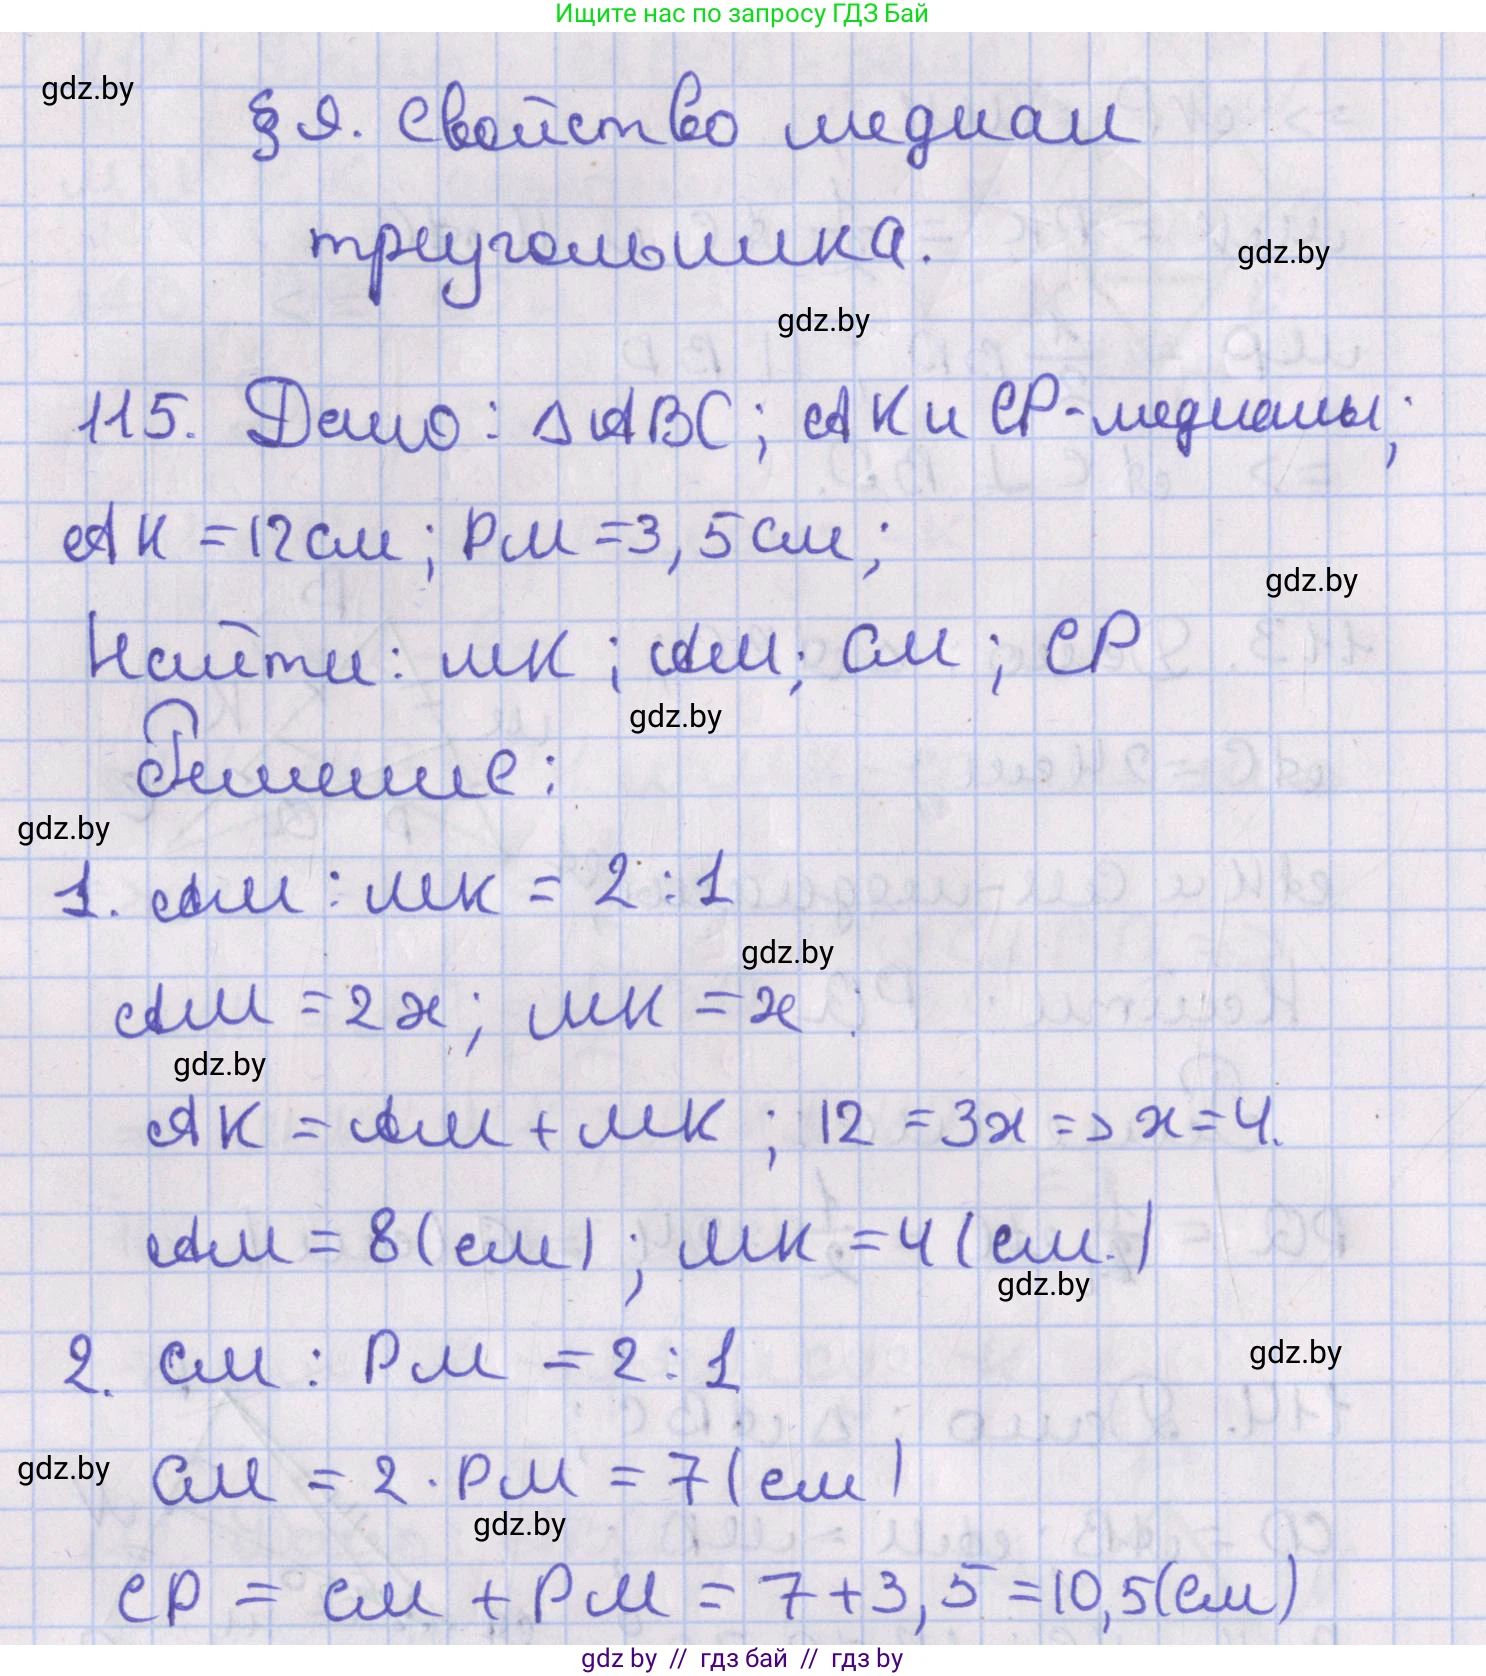 Ищите нас по запросу ГДЗ Бай
gdz.by
§ 9. Свойство медиан
треугольника.
gdz.by
gdz.by
115. Дано: △ABC; AK и CP - медианы;
AK = 12 см; PM = 3,5 см;
gdz.by
Найти: MK; AM; CM; CP
gdz.by
Решение:
gdz.by
1. AM : MK = 2 : 1
gdz.by
AM = 2x; MK = x
gdz.by
AK = AM + MK; 12 = 3x => x = 4.
AM = 8 (см); MK = 4 (см.)
gdz.by
2. CM : PM = 2 : 1
gdz.by
gdz.by
CM = 2 · PM = 7 (см)
gdz.by
CP = CM + PM = 7 + 3,5 = 10,5 (см)
gdz by // гдз бай // гдз by